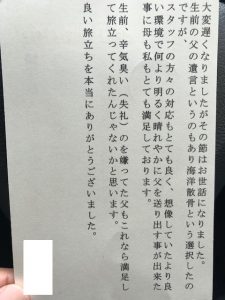 大変遅くなりましたがその節はお世話になりました。
生前の父の遺言というのもあり海洋散骨という選択したの
ですが、
スタッフの方々の対応もとても良く、想像していたより良
い環境で何より明るく晴れやかに父を送り出す事が出来た
事に母も私もとても満足しております。
生前、辛気臭い(失礼)のを嫌ってた父もこれなら満足し
て旅立ってくれたんじゃないかと思います。
良い旅立ちを本当にありがとうございました。